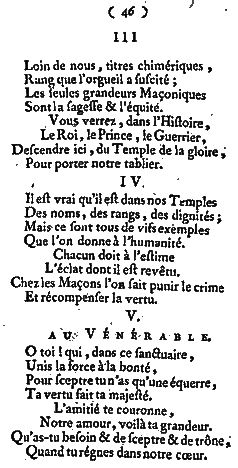 ( 46 )
III
Loin de nous, titres chimériques,
Rang que l'orgueil a suscité ;
Les seules grandeurs Maçoniques
Sont la sagesse & l'équité.
Vous verrez, dans l'Histoire,
Le Roi, le Prince, le Guerrier,
Descendre ici, du Temple de la gloire,
Pour porter notre tablier.
IV.
Il est vrai qu'il est dans nos Temples
Des noms, des rangs, des dignités ;
Mais ce sont tous de vifs exemples
Que l'on donne à l'humanité.
Chacun doit à l'estime
L'éclat dont il est revêtu.
Chez les Maçons l'on sait punir le crime
Et récompenser la vertu.
V.
AU VÉNÉRABLE.
O toi ! qui, dans ce sanctuaire,
Unis la force à la bonté,
Pour sceptre tu n'as qu'une équerre,
Ta vertu fait ta majesté.
L'amitié te couronne,
Notre amour, voilà ta grandeur.
Qu'as-tu besoin & de sceptre & de trône,
Quand tu régnes dans notre cœur.